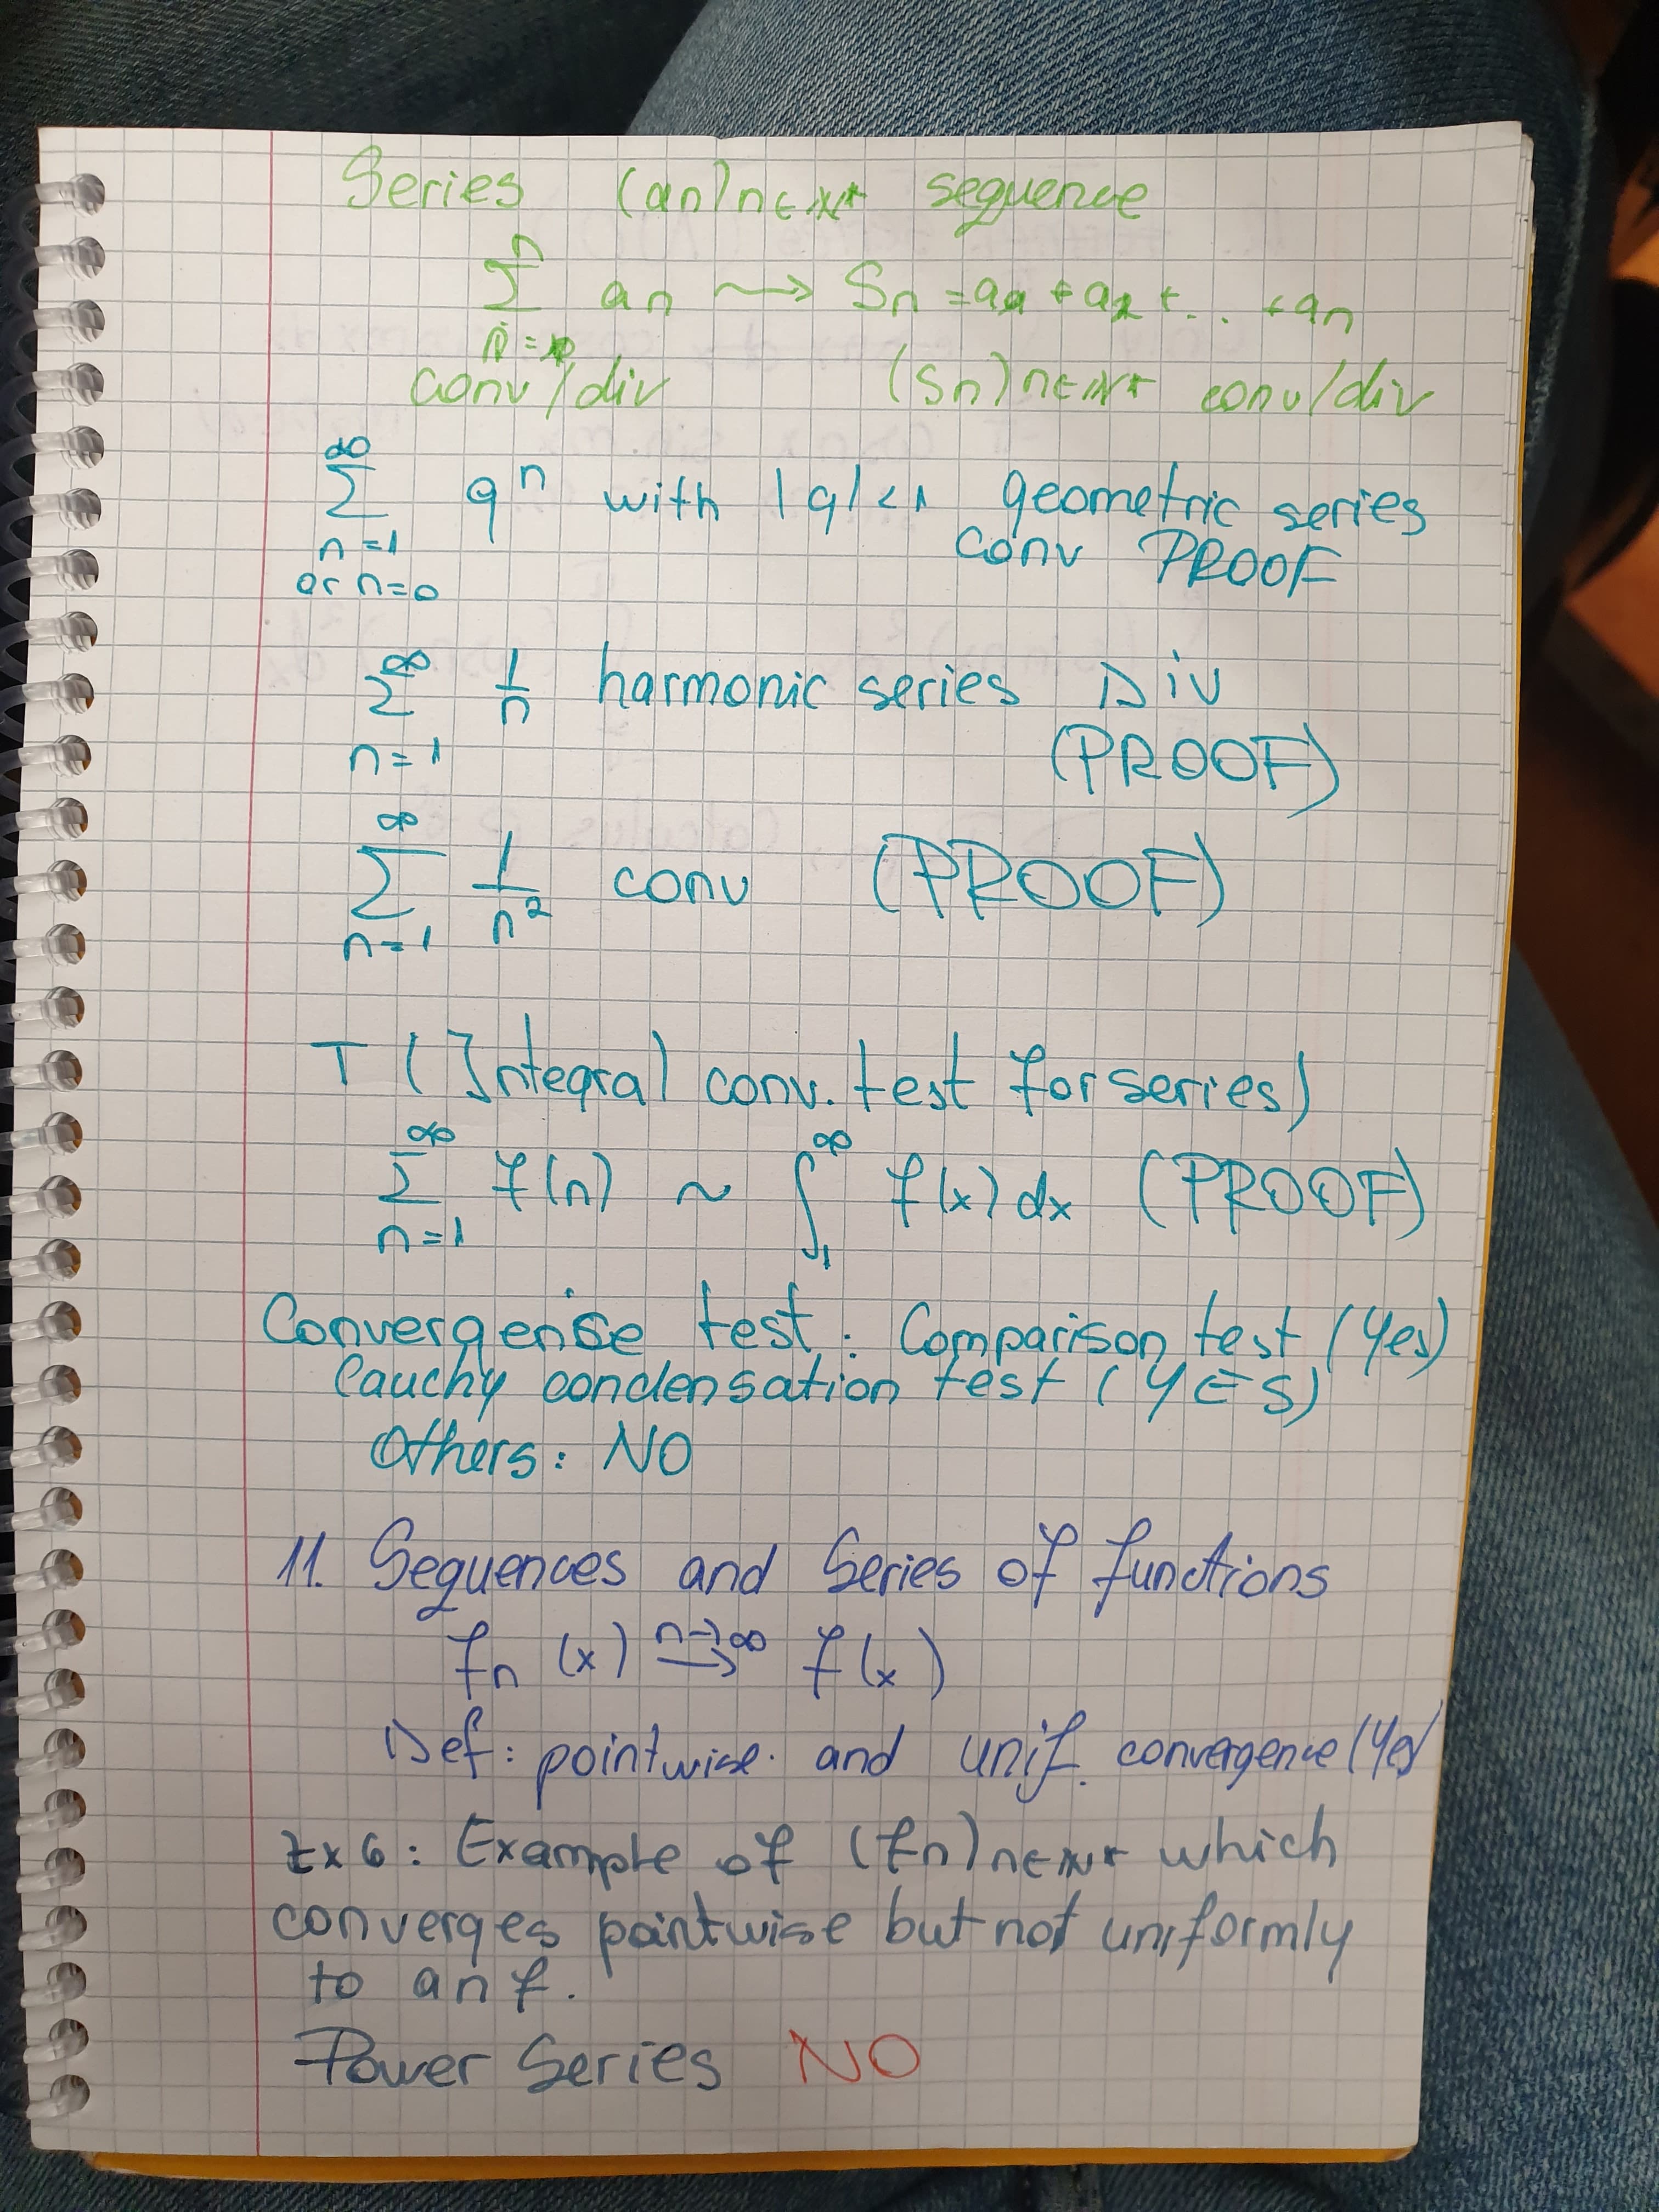 Series (an)n∈ℕ* sequence
n
∑ an ⟿ Sn = a1 + a2 + ... + an
n =
conv/div (Sn)n∈ℕ* conv/div
∞
∑ q^n with |q|<1 geometric series
n=1 conv PROOF
or n=0
∞
∑ 1/n harmonic series Div
n=1 (PROOF)
∞
∑ 1/n² conv (PROOF)
n=1
T (Integral conv. test for series)
∞ ∞
∑ f(n) ~ ∫ f(x) dx (PROOF)
n=1 1
Convergense test: Comparison test (Yes)
Cauchy condensation test (YES)
Others: NO
11. Sequences and Series of functions
fn (x) n→∞ → f(x)
Def: pointwise. and unif. convergence (Yes)
Ex 6: Example of (fn)n∈ℕ* which
converges pointwise but not uniformly
to an f.
Power Series NO